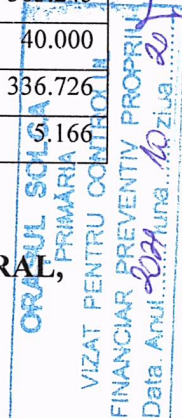 40.000
336.726
5.166
RAL,
ORAȘUL SOLCA
PRIMĂRIA
VIZAT PENTRU CONTROLUL
FINANCIAR PREVENTIV PROPRIU
Data. Anul....2021 luna 10 ziua 20